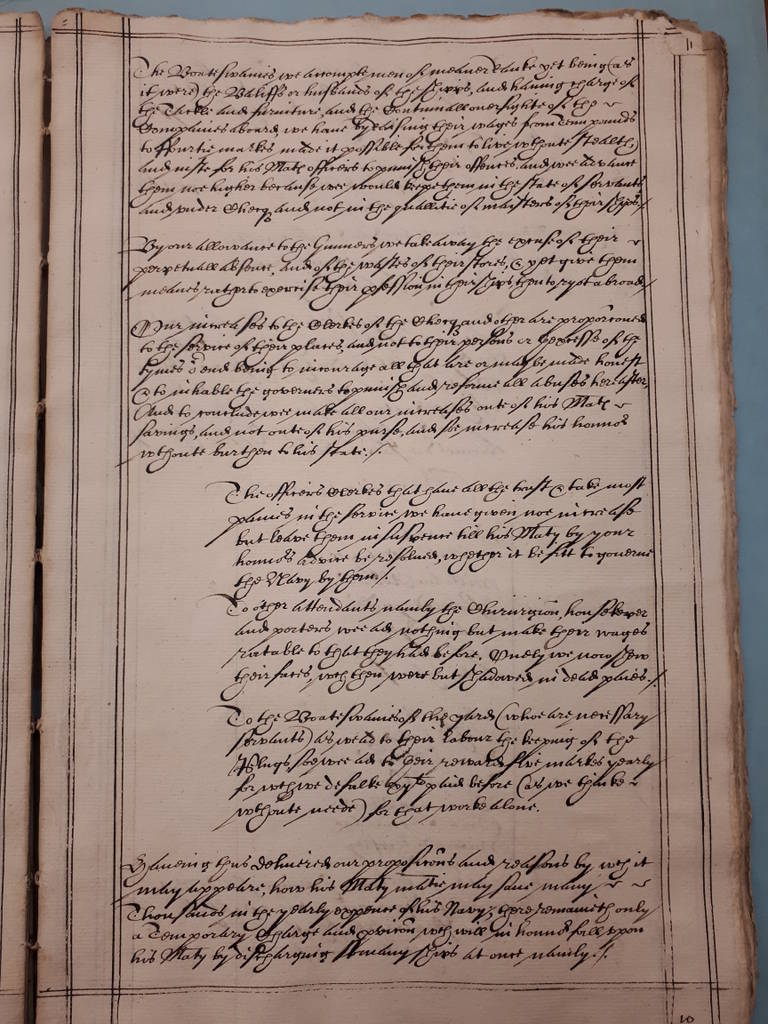 11
The Boateswaines we accompte men of meaner ranke yet being (as
it were) the Bailiffs or husbands of the shipps, and having charge of
the Tackle and furniture, and the Continuall oversighte of the
Companies aboard, we have by raising their wages from Tenn pounds
to ffourtie markes made it possible for them to live wthoute stealth,
and iuste for his Mats officers to punish their offences, and wee advance
them noe higher because, wee would keepe them in the state of servants
and under Checq and not in the quallitie of maisters of their shipps./
By our allowance to the Gunners, we take away the expense of their
perpetuall absence, and of the wastes of their stores, & yet give them
meanes rather to exercise their pfession, in their shipps then to ryot abroade/
Our increases to the Clerkes of the Checq and other are proporconed
to the service of their places, and not to their persons or excesse of the
tymes or end being to incourage all that are or may be made honest
& to inhable the governers to punish and reforme all abuses hereafter,
And to conclude, wee make all our increases oute of his Mats
savings, and not oute of his purse, and soe increase his honnor
wthoute burthen to his state./.
The officers Clerkes that have all the trust & take most
paines in the service we have given noe increase
but leave them in suspence till his Maty by your
honnors advice be resolved, whether it be fitt to governe
the Navy by them./.
To other attendants namly the Chirurgion, housekeeper
and porters wee add nothing but make their wages
ratable to that they had before. Onely we now shew
their faces, wch then were but shadowed in dead paies./.
To the Boateswaines of the yard (who are necessary
servants) as we add to their Labour the keeping of the
Plugs, soe wee add to their reward five markes yearly
for wch we defalke paid before (as we thinke
wthoute neede) for that worke alone.
Haveing thus delivered our propositions and reasons by wch it
may appeare, how his Maty may save many
Thousands in the yearly expence of his Navy; there remaineth only
a Temporary Charge and wch will in honnor fall upon
his Maty by discharging soe many shipps at once namly./.
10